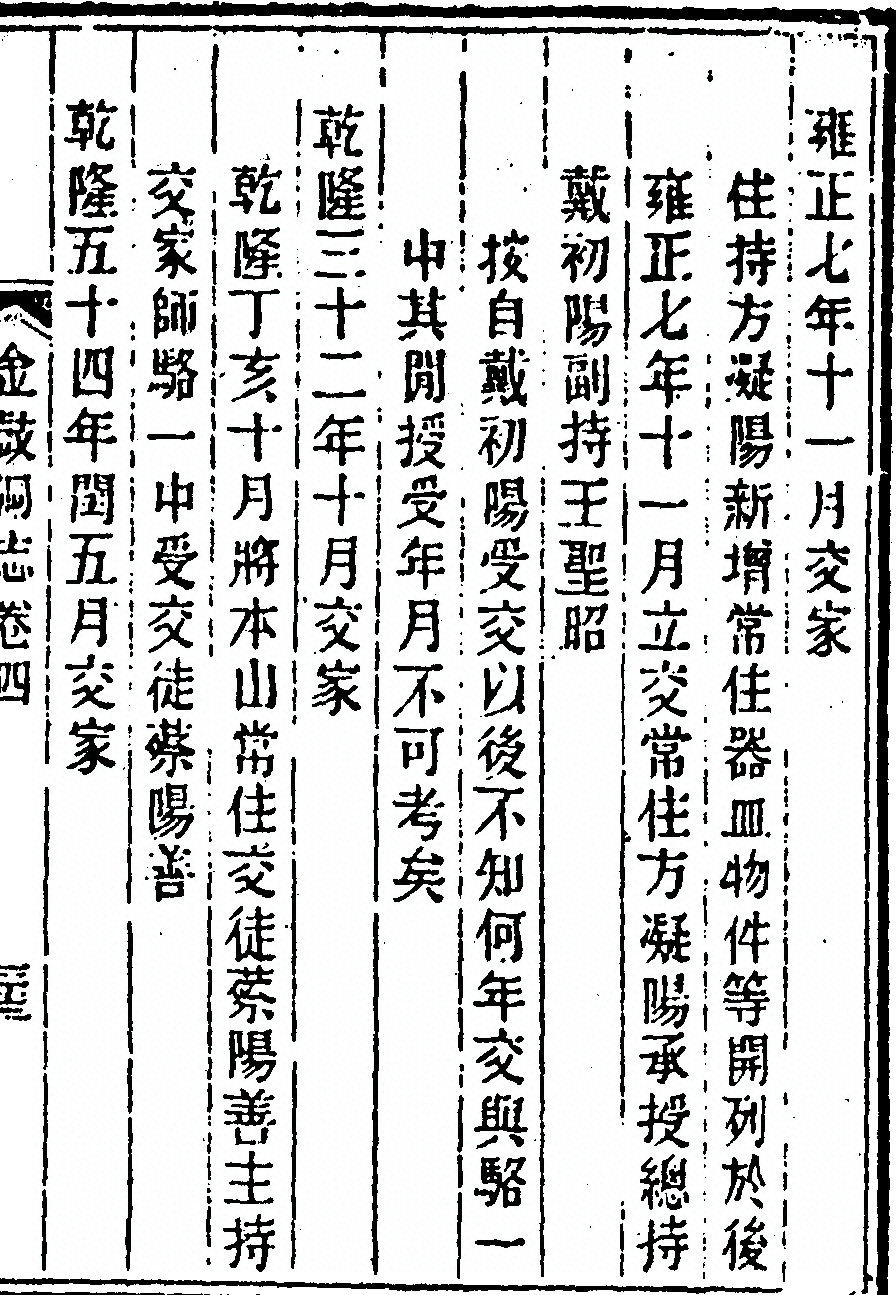 雍正七年十一月交家
住持方凝陽新增常住器皿物件等開列於後
雍正七年十一月立交常住方凝陽承授總持
戴初陽副持王聖昭
按自戴初陽受交以後不知何年交與駱一
中其閒授受年月不可考矣
乾隆三十二年十月交家
乾隆丁亥十月將本山常住交徒蔡陽善主持
交家師駱一中受交徒蔡陽善
乾隆五十四年閏五月交家
金鼓洞志卷四